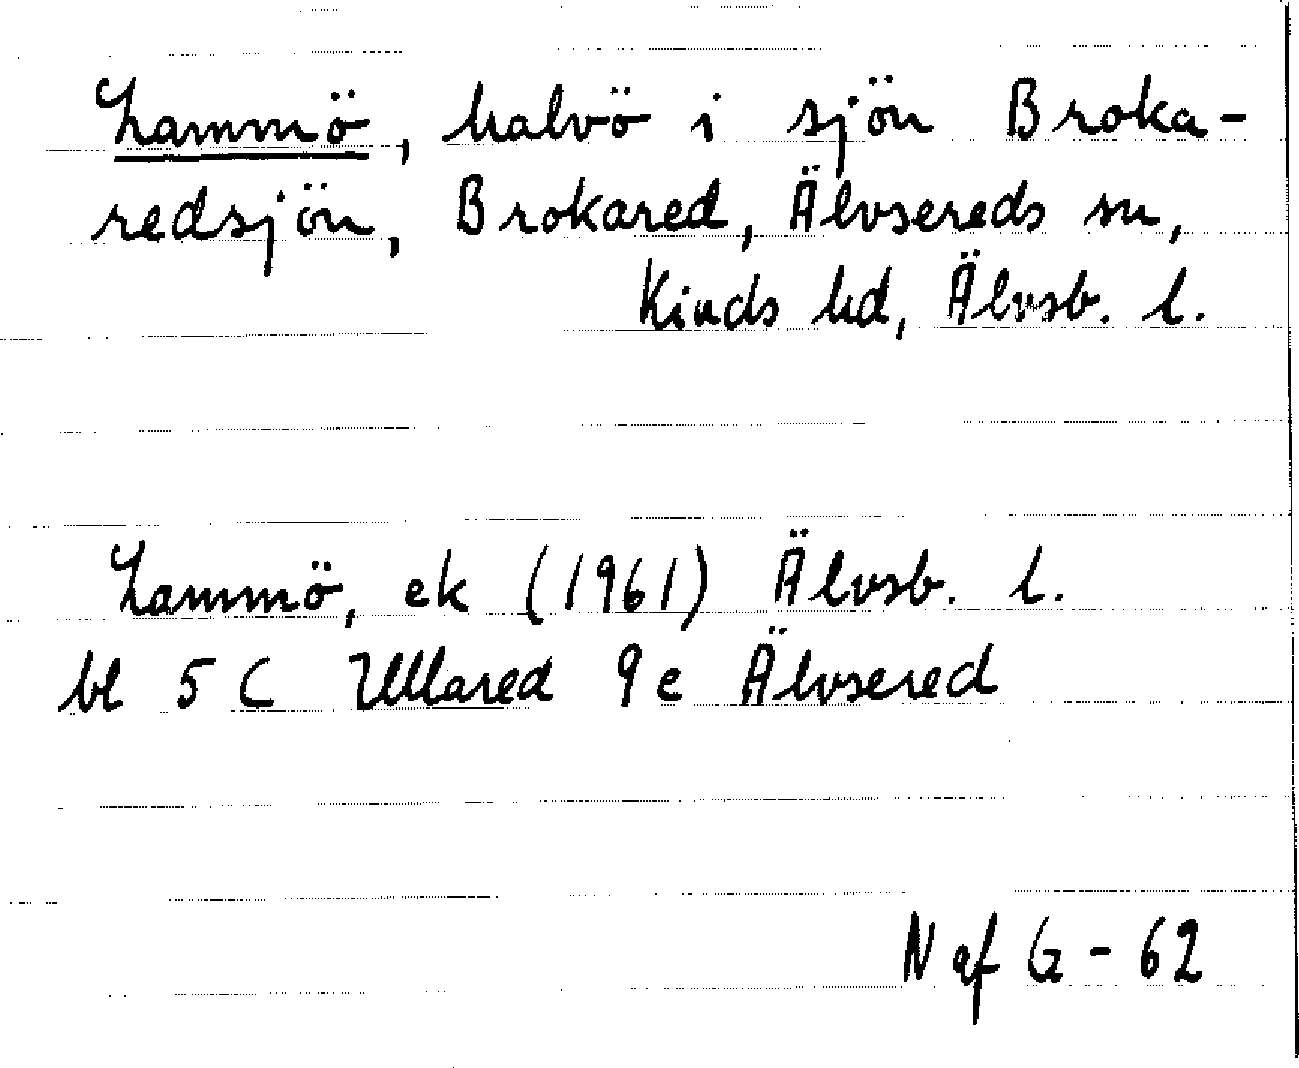 Lammö, halvö i sjön Broka-
redsjön, Brokared, Älvsereds sn,
Kinds hd, Älvsb. l.
Lammö, ek (1961) Älvsb. l.
bl 5 C Ullared 9 e Älvsered
N af G - 62